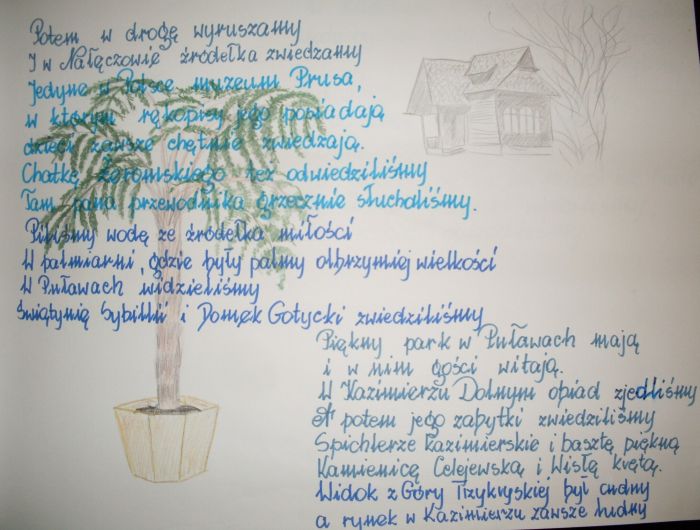 Potem w drogę wyruszamy
I w Nałęczowie źródełka zwiedzamy
Jedyne w Polsce muzeum Prusa,
w którym rękopisy jego posiadają
dzieci zawsze chętnie zwiedzają.
Chatkę Żeromskiego też odwiedziliśmy
Tam pana przewodnika grzecznie słuchaliśmy.
Piliśmy wodę ze źródełka miłości
W palmiarni, gdzie były palmy olbrzymiej wielkości
W Puławach widzieliśmy
Świątynię Sybilli i Domek Gotycki zwiedziliśmy
Piękny park w Puławach mają
i w nim gości witają.
W Kazimierzu Dolnym obiad zjedliśmy
A potem jego zabytki zwiedziliśmy
Spichlerze Kazimierskie i basztę piękną
Kamienicę Celejewską i Wisłę krętą.
Widok z Góry Trzykrzyskiej był cudny
a rynek w Kazimierzu zawsze ludny